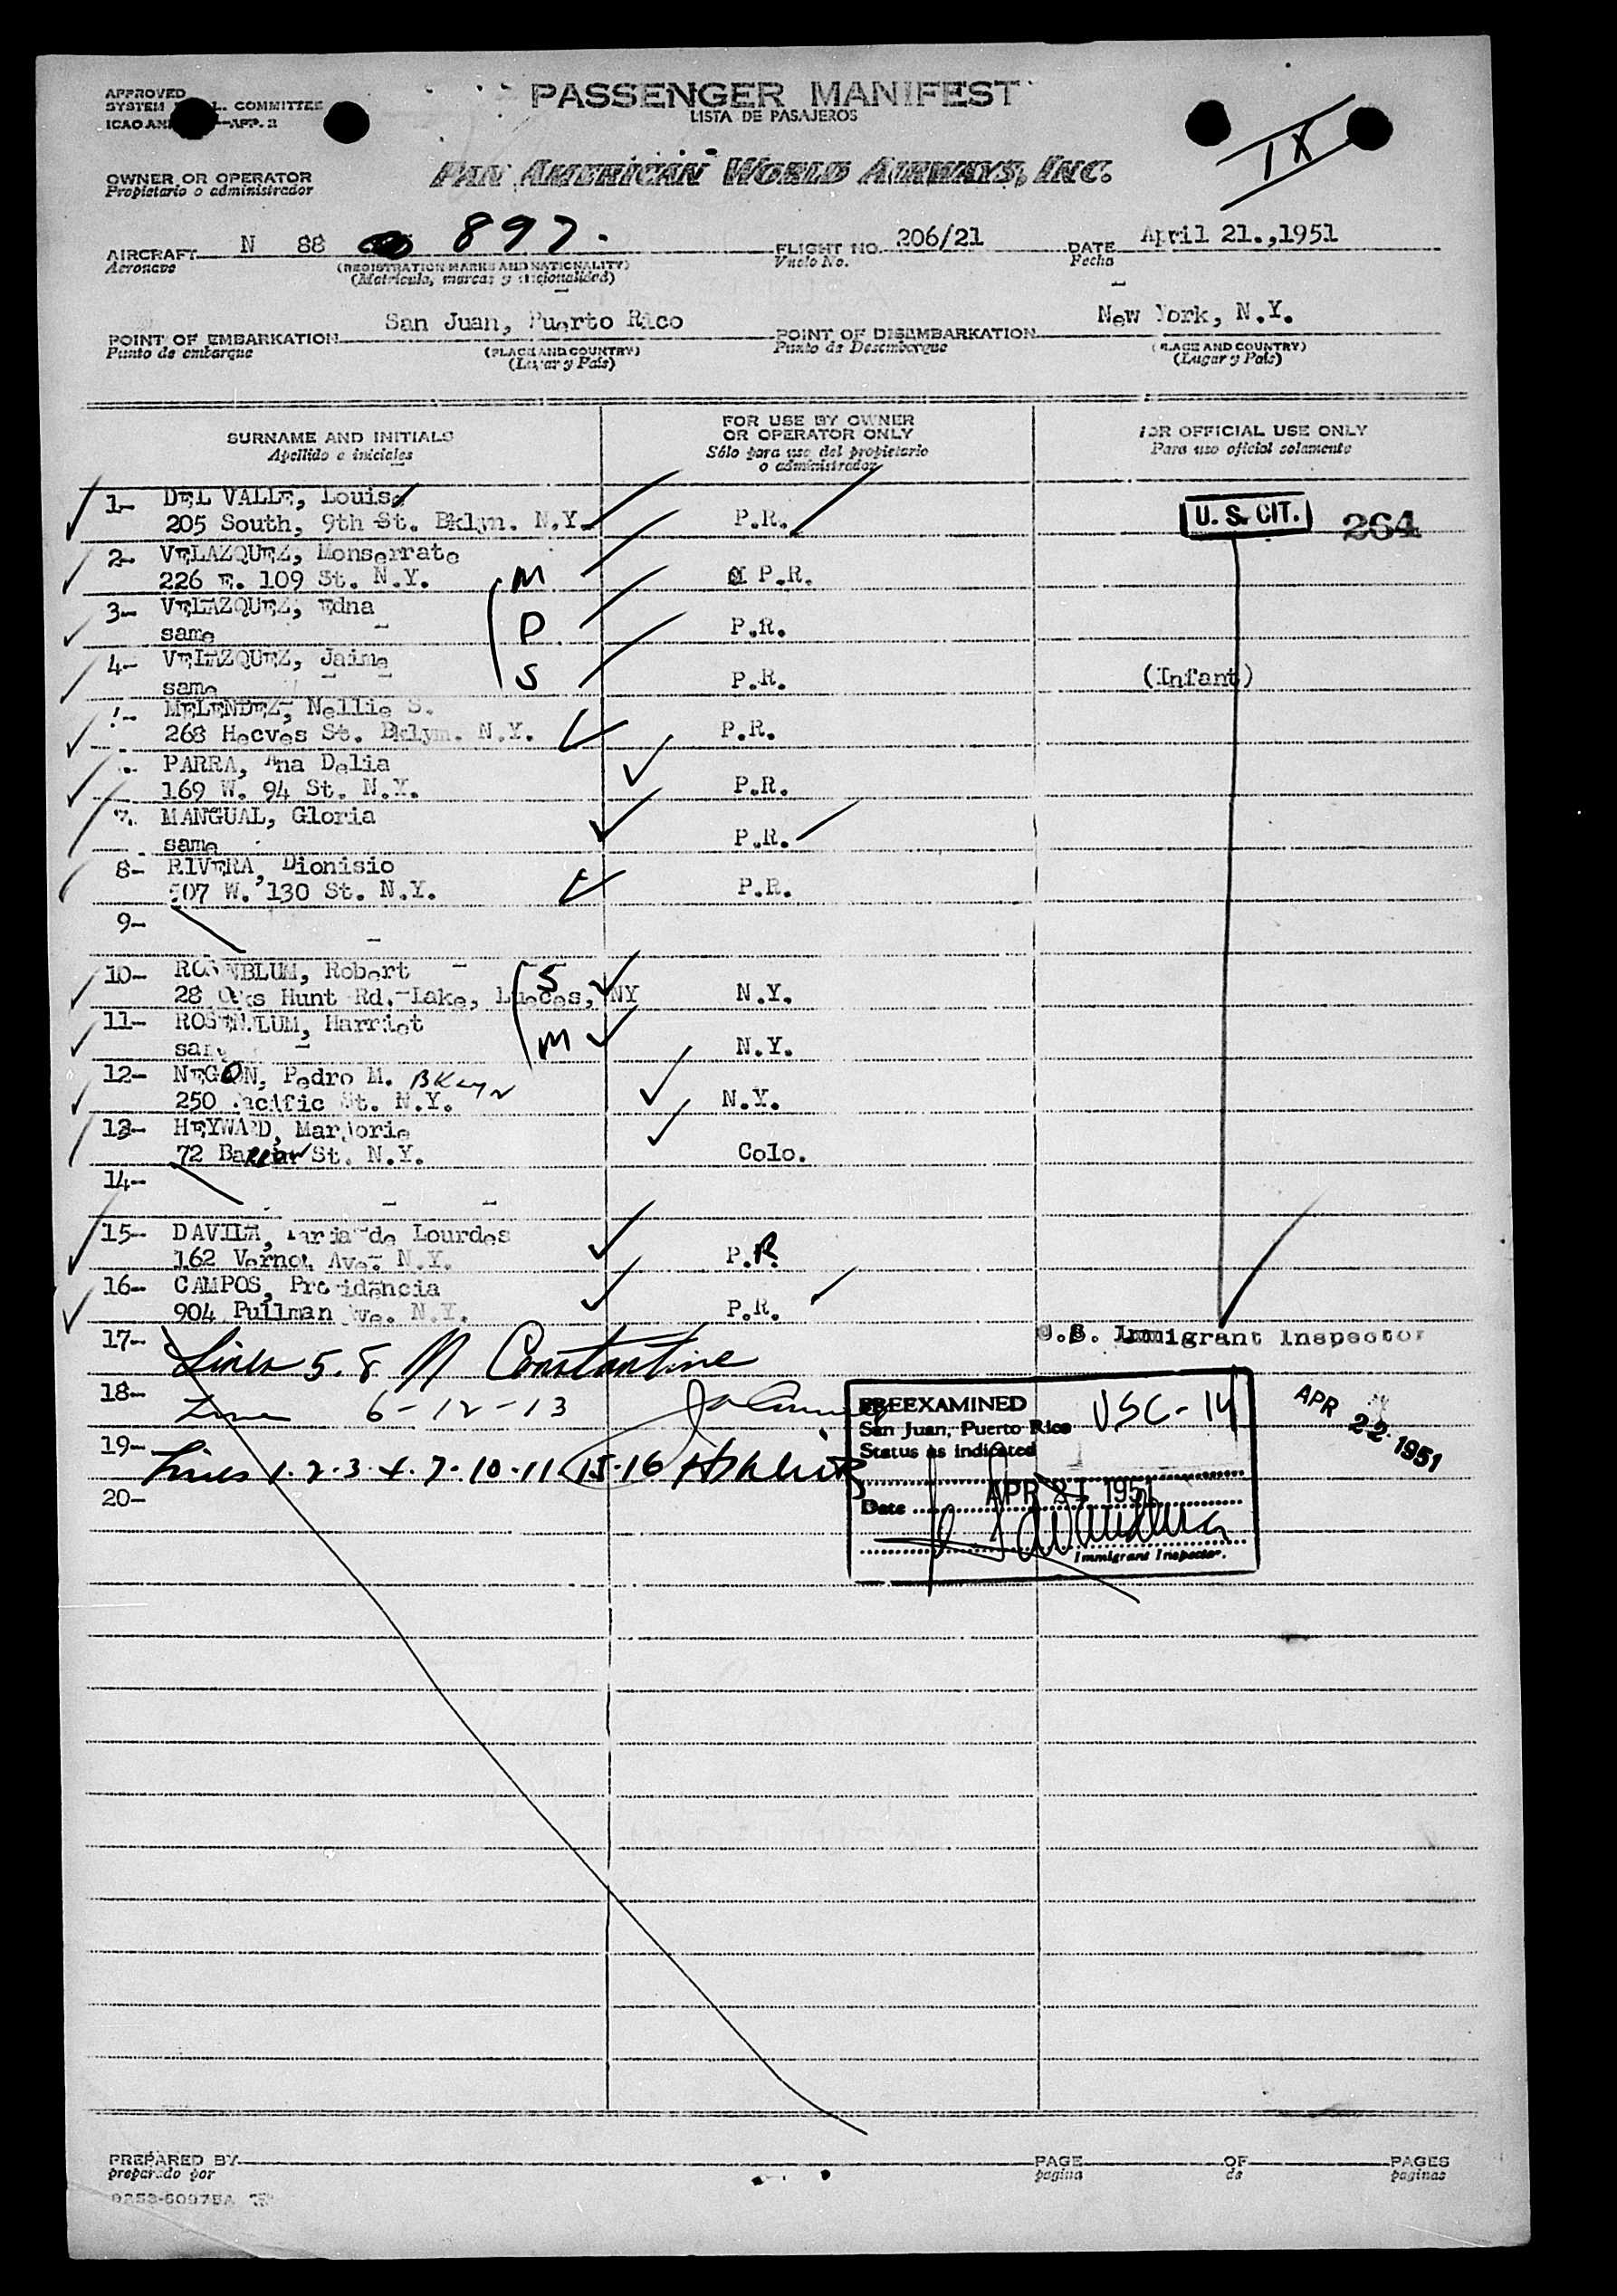 APPROVED
SYSTEM L. COMMITTEE
ICAO APP. 2
PASSENGER MANIFEST
LISTA DE PASAJEROS
1 X
OWNER OR OPERATOR
Propietario o administrador
PAN AMERICAN WORLD AIRWAYS, INC.
AIRCRAFT N 88 897. FLIGHT NO. 206/21 DATE April 21.,1951
Aeronave (REGISTRATION MARKS AND NATIONALITY) Vuelo No. Fecha
(Matricula, marcas y nacionalidad)
POINT OF EMBARKATION San Juan, Puerto Rico POINT OF DISEMBARKATION New York, N.Y.
Punto de embarque (PLACE AND COUNTRY) Punto de Desembarque (PLACE AND COUNTRY)
(Lugar y País) (Lugar y País)
SURNAME AND INITIALS FOR USE BY OWNER OR OPERATOR ONLY FOR OFFICIAL USE ONLY
Apellido e iniciales Sólo para uso del propietario o administrador Para uso oficial solamente
1- DEL VALLE, Louis
205 South, 9th St. Bklyn. N.Y. P.R. U. S. CIT. 264
2- VELAZQUEZ, Monserrate
226 E. 109 St. N.Y. M P.R.
3- VELAZQUEZ, Edna
same D P.R.
4- VELAZQUEZ, Jaime
same S P.R. (Infant)
MELENDEZ, Nellie S.
268 Heeves St. Bklyn. N.Y. P.R.
PARRA, Ana Delia
169 W. 94 St. N.Y. P.R.
7. MANGUAL, Gloria
same P.R.
8- RIVERA, Dionisio
507 W. 130 St. N.Y. P.R.
9-
10- ROSENBLUM, Robert S
28 Hunt Rd. Lake, NY N.Y.
11- ROSENBLUM, Harriet
same M N.Y.
12- NEGON, Pedro M. BKlyn
250 Pacific St. N.Y. N.Y.
13- HEYWARD, Marjorie
72 Barrow St. N.Y. Colo.
14-
15- DAVILA, Maria de Lourdes
162 Vernon Ave. N.Y. P.R.
16- CAMPOS, Providencia
904 Pullman Ave. N.Y. P.R.
U.S. Immigrant Inspector
17- Lines 5.8 M Constantine
18- Line 6-12-13
19- Lines 1.2.3.4.7.10.11.15.16
20-
PREEXAMINED USC-14
San Juan, Puerto Rico
Status as indicated
Date APR 21 1951
Immigrant Inspector.
APR 22 1951
PREPARED BY PAGE OF PAGES
preparado por pagina de paginas